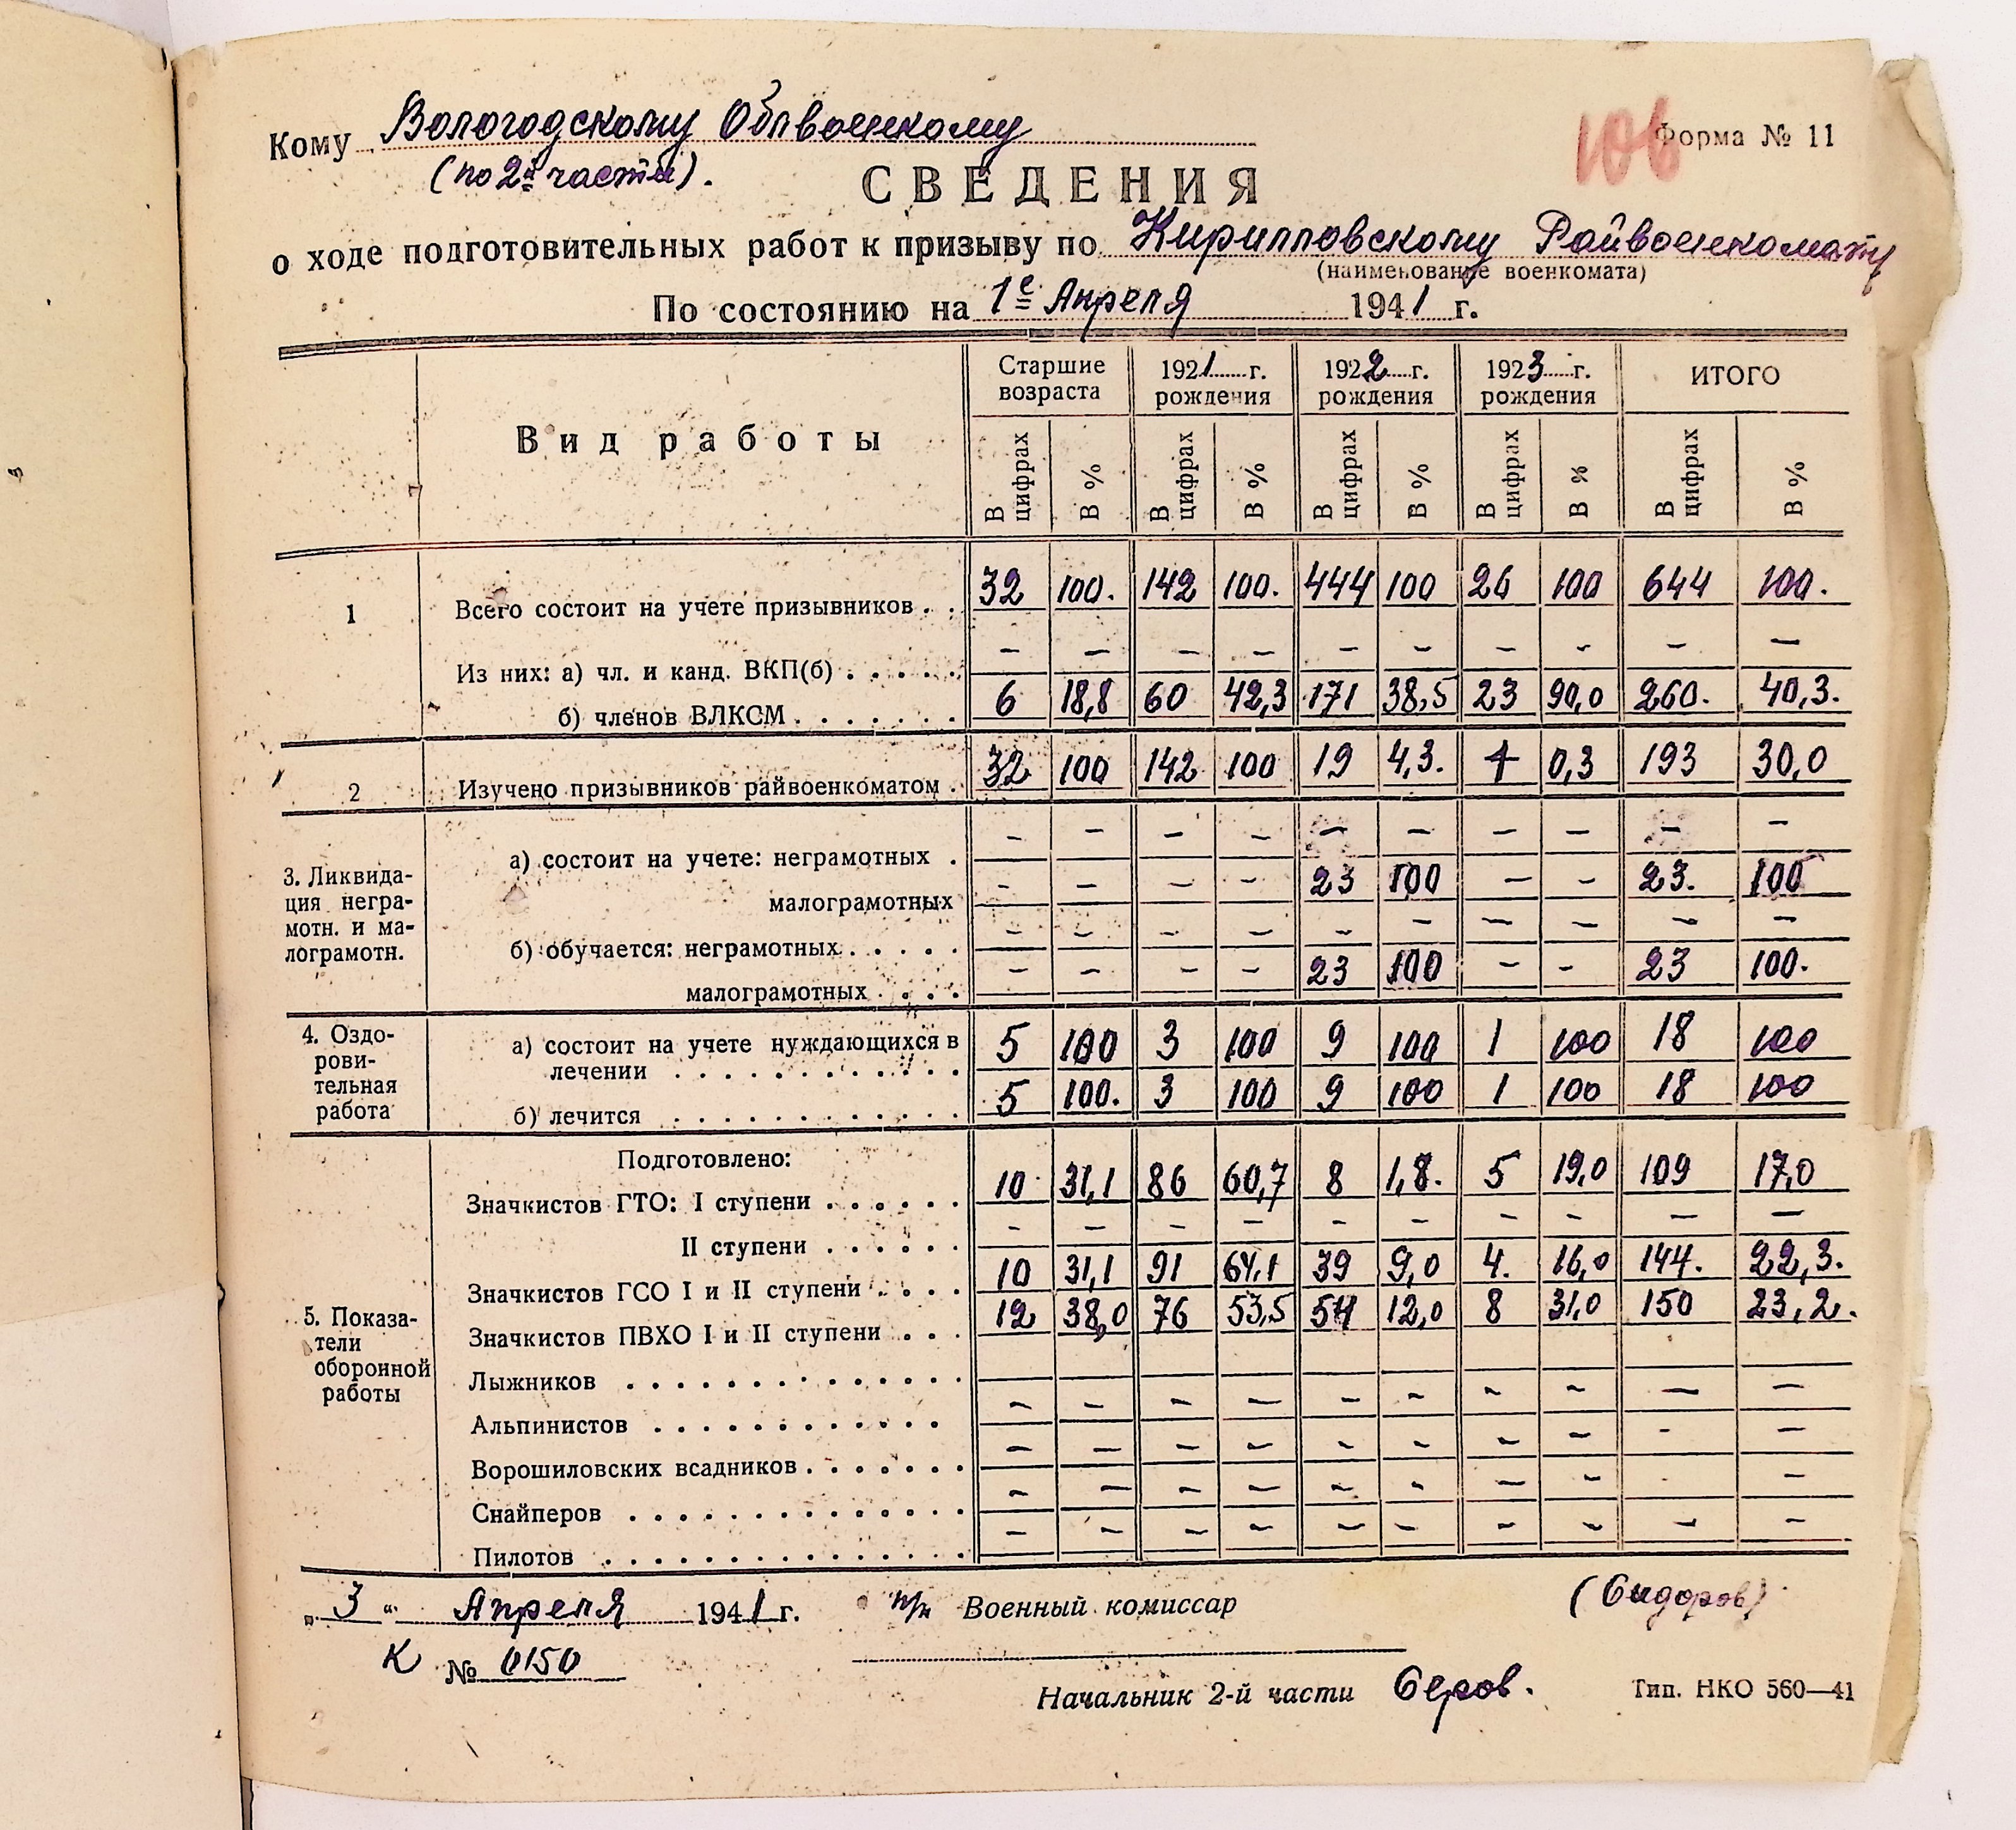 Кому Вологодскому Облвоенкому
(по 2й части).
106
Форма № 11
СВЕДЕНИЯ
о ходе подготовительных работ к призыву по Кирилловскому Райвоенкомату
(наименование военкомата)
По состоянию на 1е Апреля 1941 г.
Вид работы
Старшие возраста
1921 г. рождения
1922 г. рождения
1923 г. рождения
ИТОГО
В цифрах В % В цифрах В % В цифрах В % В цифрах В % В цифрах В %
1 Всего состоит на учете призывников . . 32 100. 142 100. 444 100 26 100 644 100.
Из них: а) чл. и канд. ВКП(б) . . . . . – – – – – – – – – –
б) членов ВЛКСМ . . . . . . . 6 18,8 60 42,3 171 38,5 23 90,0 260. 40,3.
2 Изучено призывников райвоенкоматом . 32 100 142 100 19 4,3. 0,3 193 30,0
3. Ликвида-
ция негра-
мотн. и ма-
лограмотн.
а) состоит на учете: неграмотных . – – – – – – – – – –
малограмотных – – – – 23 100 – – 23. 100
б) обучается: неграмотных . . . . . – – – – – – – – – –
малограмотных . . . . – – – – 23 100 – – 23 100.
4. Оздо-
рови-
тельная
работа
а) состоит на учете нуждающихся в
лечении . . . . . . . . . . . . . 5 100 3 100 9 100 1 100 18 100
б) лечится . . . . . . . . . . . . . 5 100. 3 100 9 100 1 100 18 100
5. Показа-
тели
оборонной
работы
Подготовлено:
Значкистов ГТО: I ступени . . . . . . 10 31,1 86 60,7 8 1,8. 5 19,0 109 17,0
II ступени . . . . . . – – – – – – – – – –
Значкистов ГСО I и II ступени . . . . 10 31,1 91 64,1 39 9,0 4. 16,0 144. 22,3.
Значкистов ПВХО I и II ступени . . . 12 38,0 76 53,5 54 12,0 8 31,0 150 23,2.
Лыжников . . . . . . . . . . . . . .
Альпинистов . . . . . . . . . . . . – – – – – – – – – –
Ворошиловских всадников . . . . . . . – – – – – – – – – –
Снайперов . . . . . . . . . . . . . . – – – – – – – – – –
Пилотов . . . . . . . . . . . . . . . – – – – – – – – – –
„ 3 “ Апреля 1941 г. п/п Военный комиссар (Сидоров)
К № 0150
Начальник 2-й части Серов.
Тип. НКО 560—41